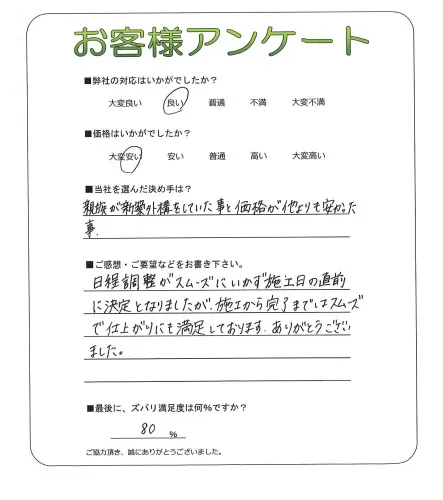 お客様アンケート
■弊社の対応はいかがでしたか？
大変良い 良い 普通 不満 大変不満
■価格はいかがでしたか？
大変安い 安い 普通 高い 大変高い
■当社を選んだ決め手は？
親族が新築外構をしていた事と価格が他よりも安かった
事.
■ご感想・ご要望などをお書き下さい。
日程調整がスムーズにいかず施工日の直前
に決定となりましたが、施工から完了まではスムーズ
で仕上がりにも満足しております.ありがとうござい
ました。
■最後に、ズバリ満足度は何％ですか？
80 %
ご協力頂き、誠にありがとうございました。